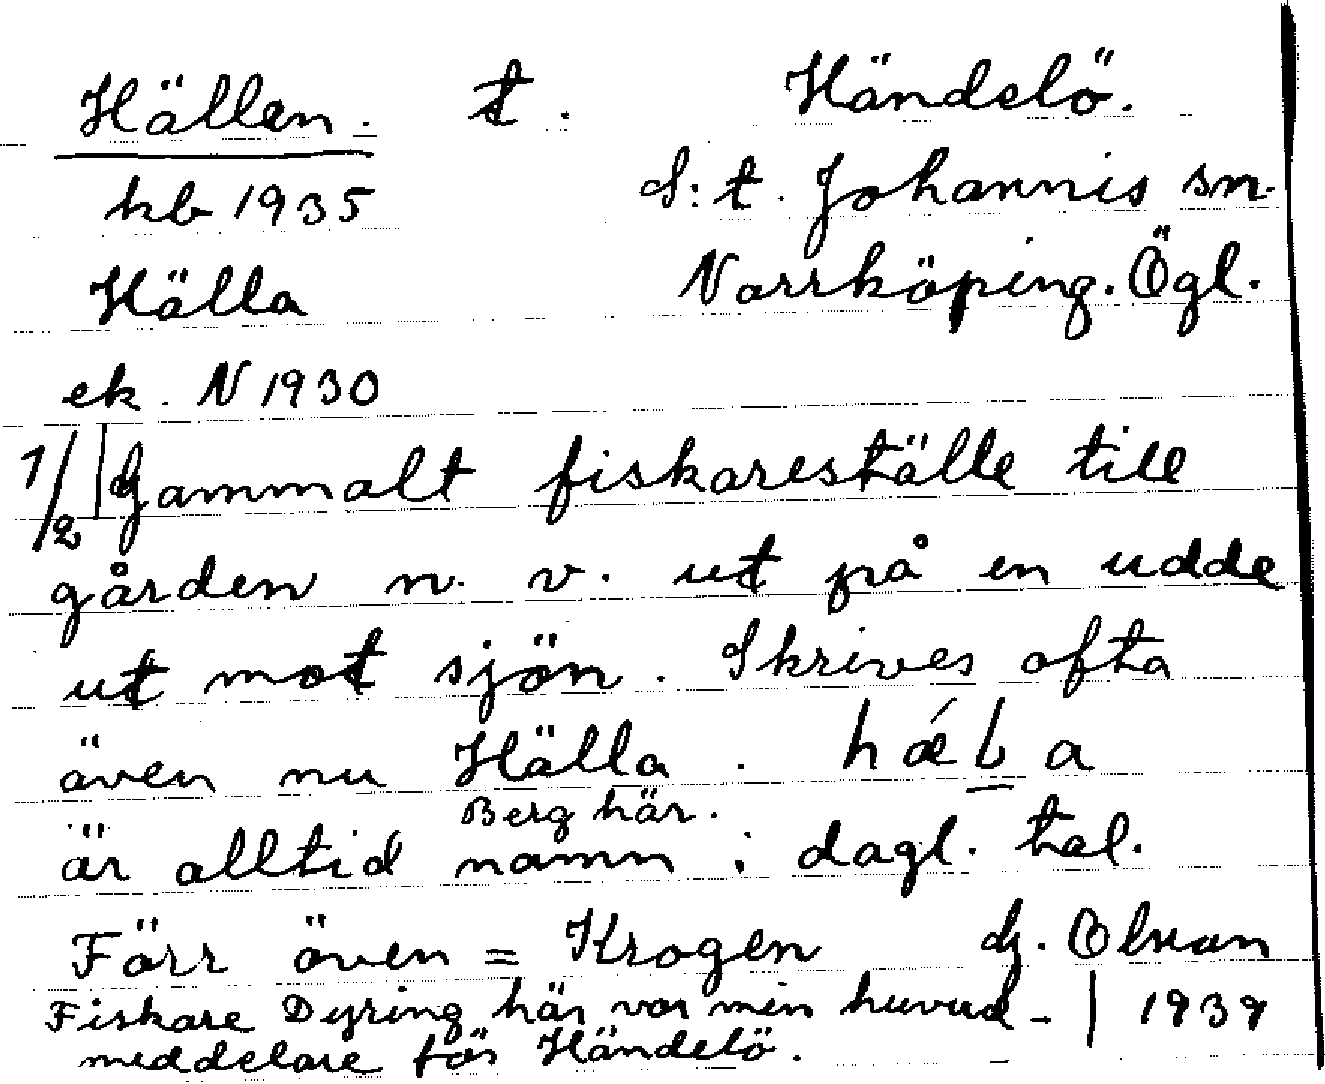 Hällen. t. Händelö.
hb 1935 S:t. Johannis sn.
Hälla Norrköping. Ögl.
ek. N 1930
1/2 Gammalt fiskareställe till
gården n. v. ut på en udde
ut mot sjön. Skrives ofta
även nu Hälla. hǽLa
Berg här.
är alltid namn i dagl. tal.
Förr även = Krogen G. Olson
Fiskare Dyring här var min huvud- 1939
meddelare för Händelö.